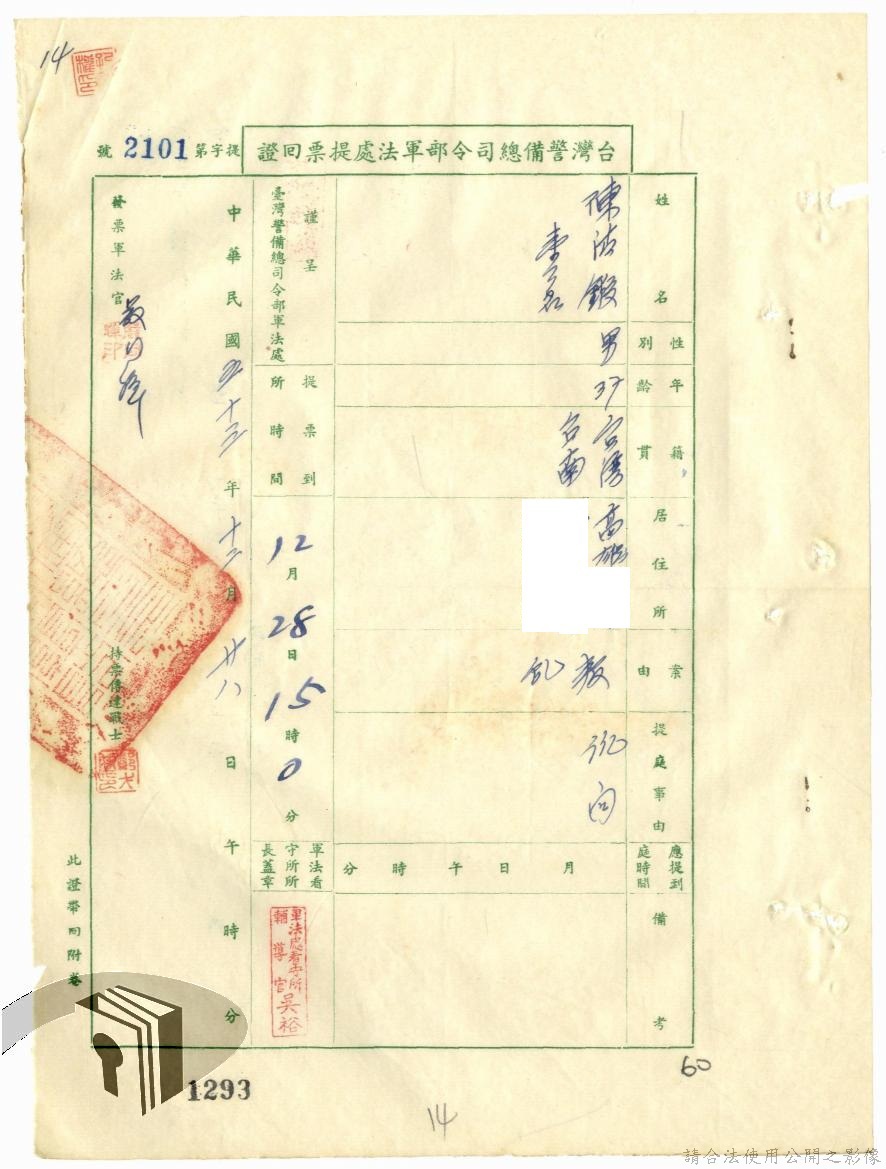 14
台灣警備總司令部軍法處提票回證
提字第2101號
姓名
陳
性別
男
年齡
37
籍貫
台灣
台南
居住所
高雄
案由
叛亂
提庭事由
訊問
應提到庭時間
月 日 午 時 分
備考
謹呈
臺灣警備總司令部軍法處
提票到所時間
12月28日15時0分
軍法看守所所長蓋章
軍法處看守所
輔導官吳裕
中華民國五十三年十二月廿八日午時分
發票軍法官
持票傳達戰士
此證帶回附卷
1293
14
60
請合法使用公開之影像